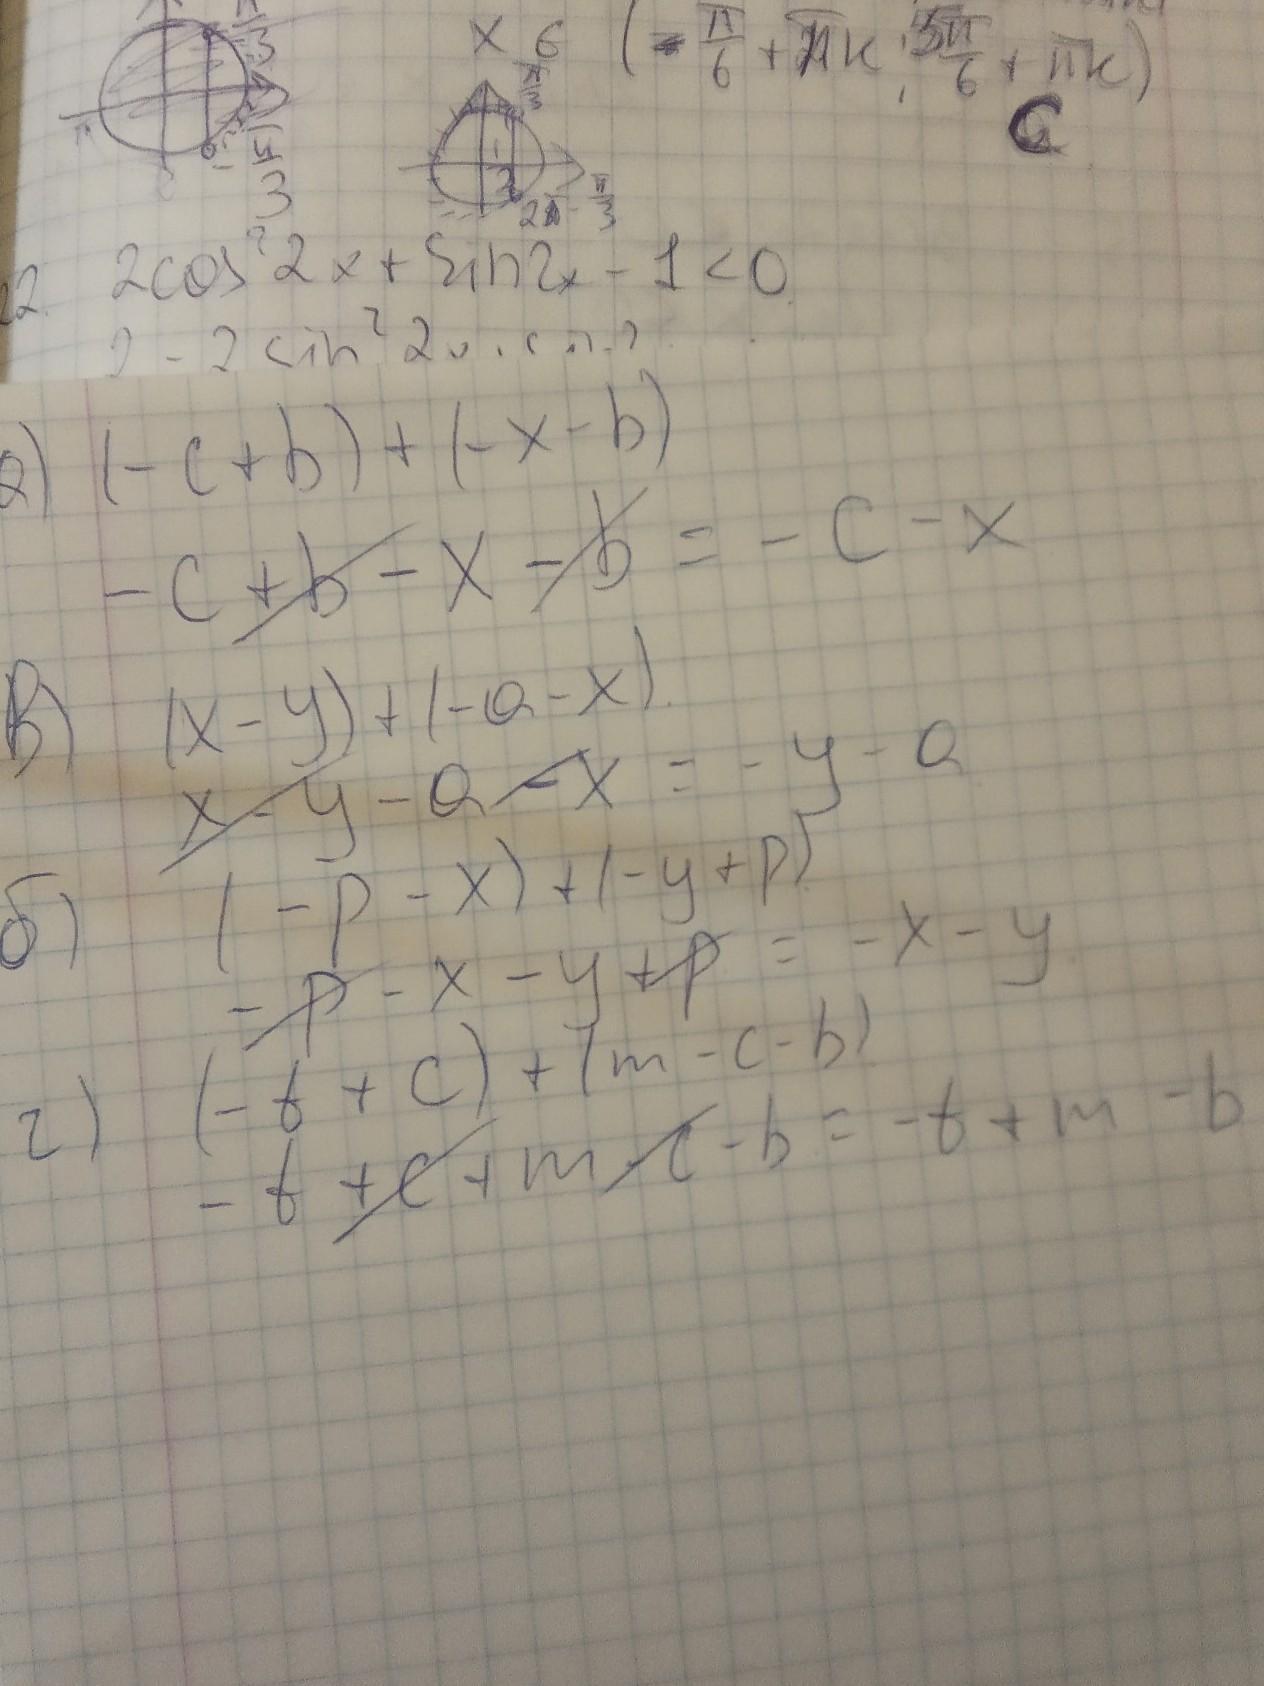 π/3
-π/3
x 6 (-π/6 + πk; 5π/6 + πk)
C
π/3
1/2
2π - π/3
22. 2cos²2x + sin2x - 1 < 0
2 - 2 sin²2x
а) (-c+b)+(-x-b)
-c+b-x-b = -c-x
в) (x-y)+(-a-x)
x-y-a-x = -y-a
б) (-p-x)+(-y+p)
-p-x-y+p = -x-y
г) (-t+c)+(m-c-b)
-t+c+m-c-b = -t+m-b